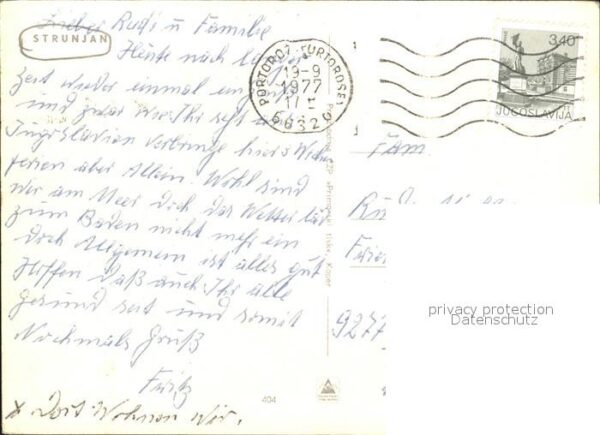 Lieber Rudi u Familie
STRUNJAN
Heute nach
Zeit wieder einmal ein
und zwar wie Ihr seht aus
Jugoslavien verbringe hier 3 Wochen
ferien aber Allein. Wohl sind
wir am Meer doch das Wetter
zum Baden nicht mehr ein
doch Allgemein ist alles gut
Hoffen daß auch Ihr alle
gesund seit und somit
Nochmals Gruß
Fritz
x Dort Wohnen Wir.
404
PORTOROŽ-PORTOROSE
19-9
1977
66320
3,40
JUGOSLAVIJA
Fam.
9277
privacy protection
Datenschutz